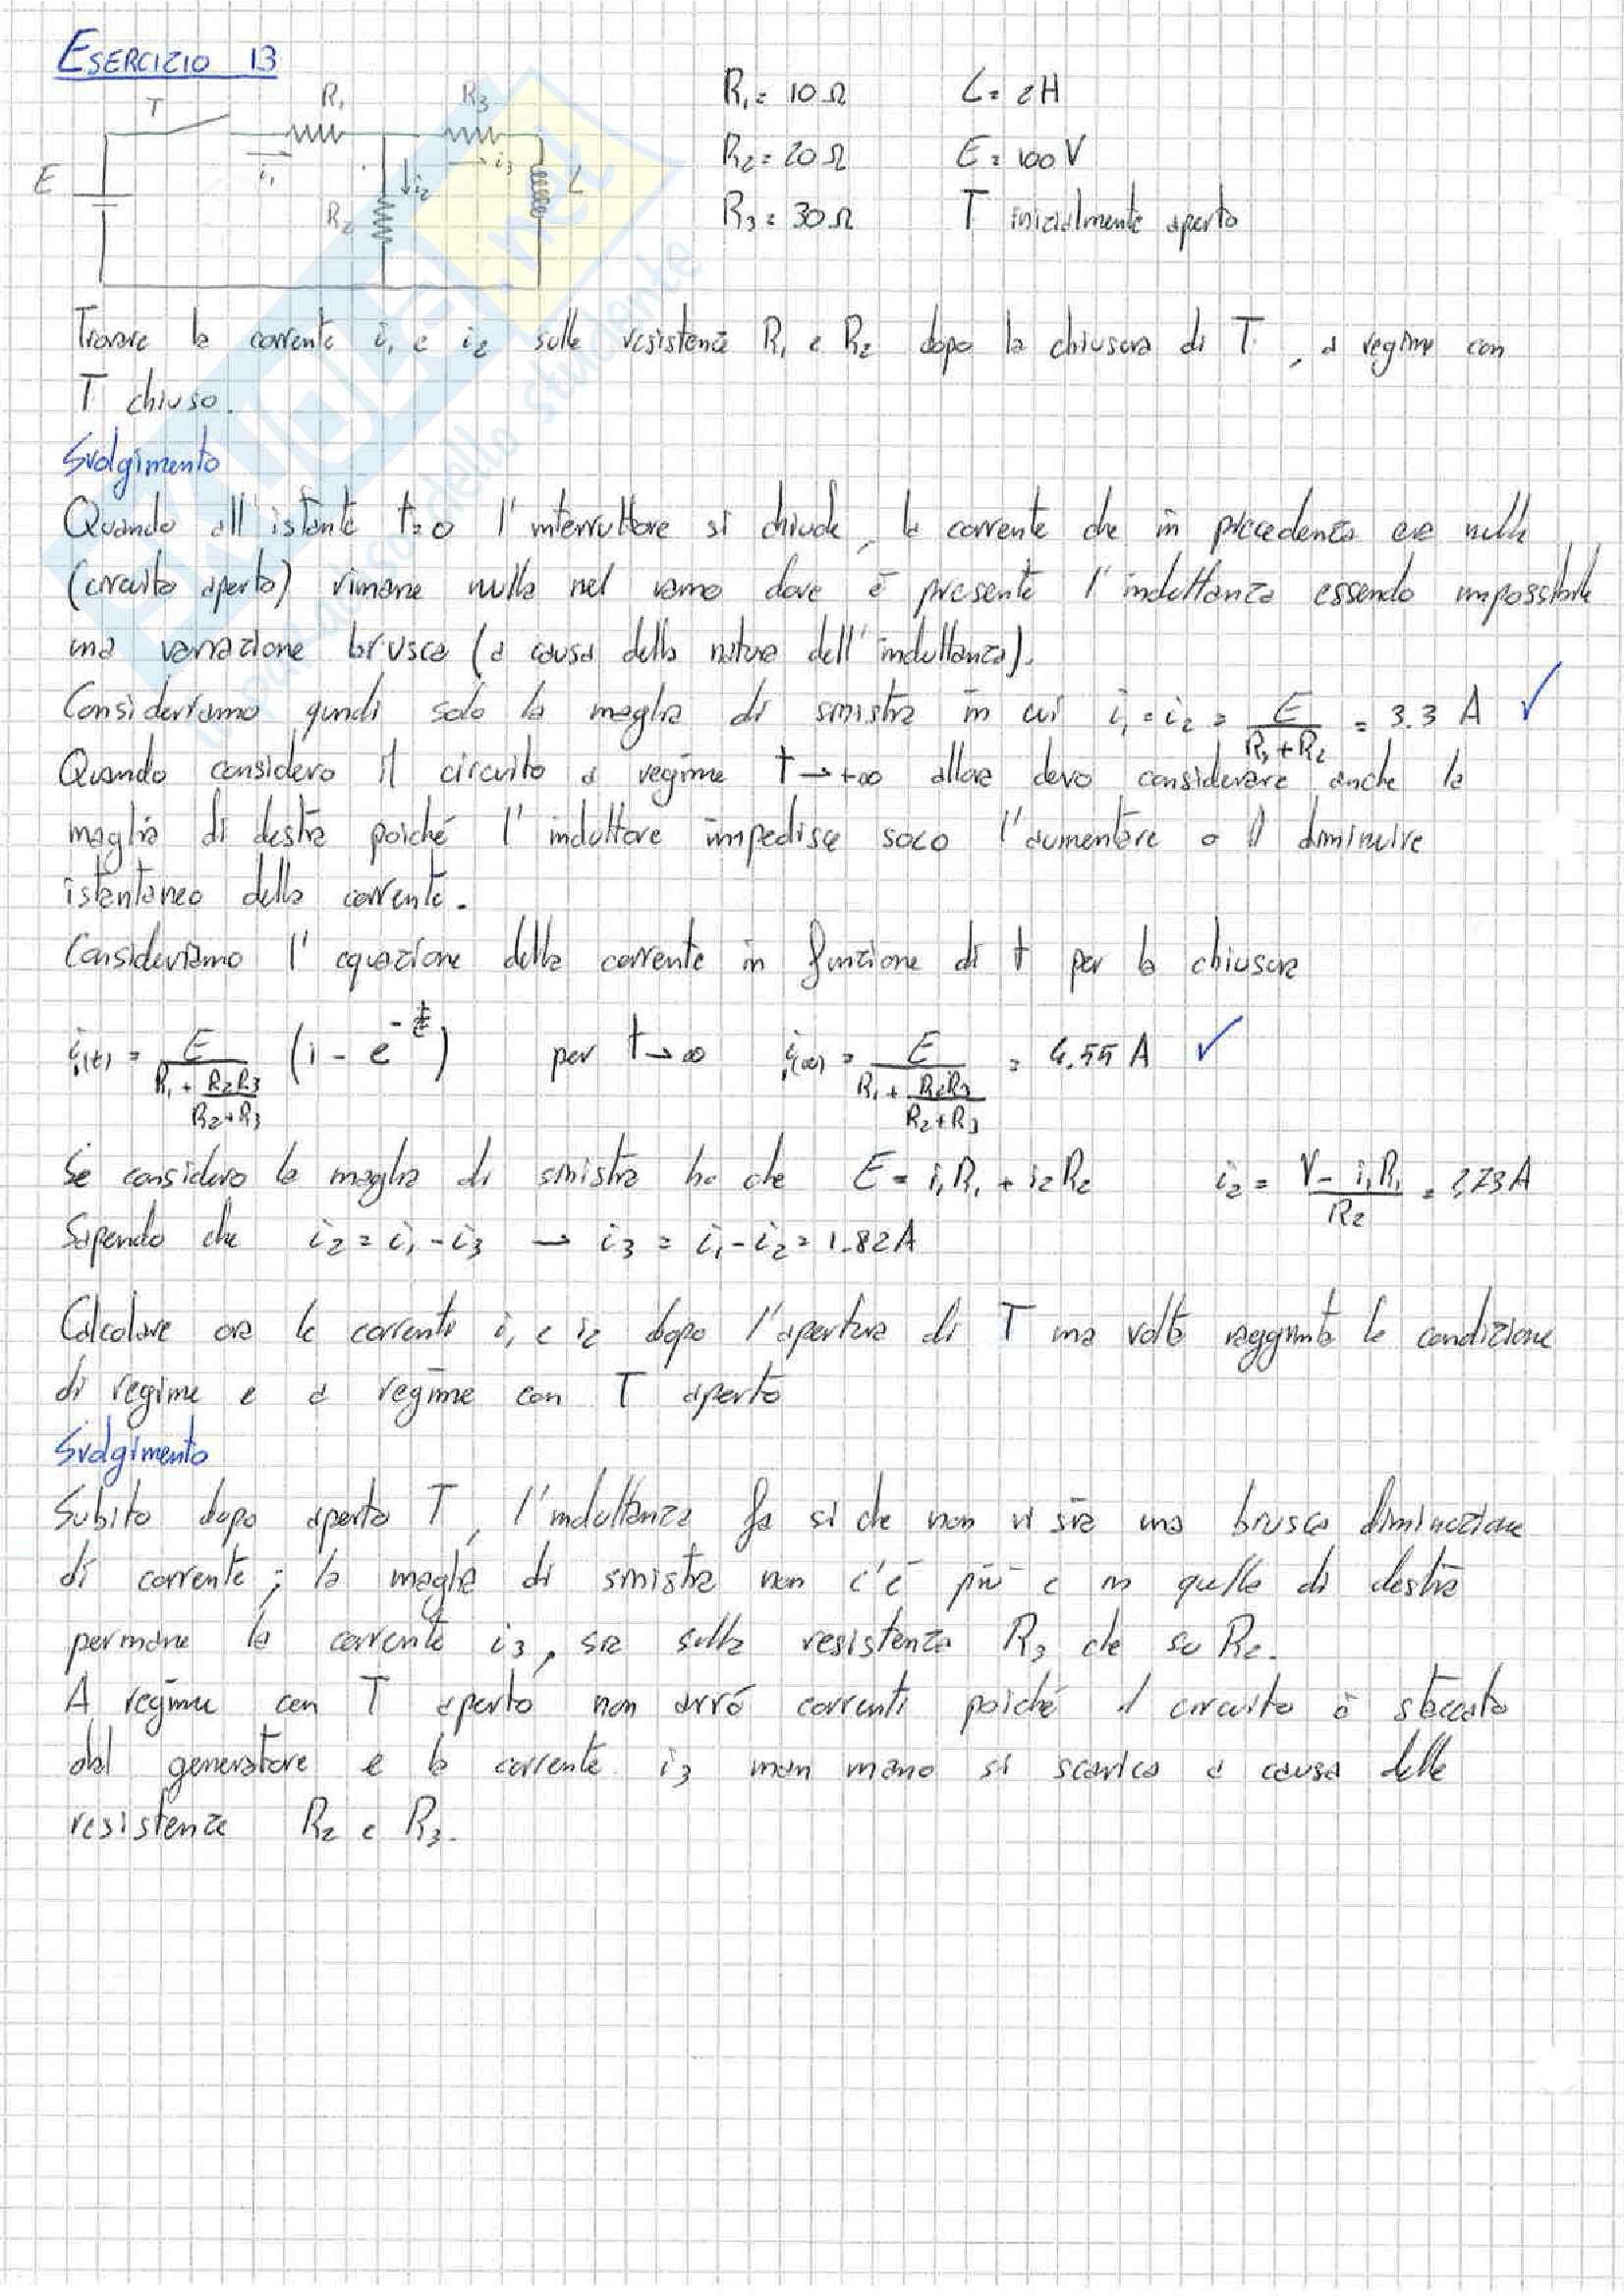 ESERCIZIO 13
T R1 R3
E i1 i2 i3 L
R2
R1 = 10 Ω L = 2H
R2 = 20 Ω E = 100 V
R3 = 30 Ω T inizialmente aperto
Trovare la corrente i1 e i2 sulle resistenze R1 e R2 dopo la chiusura di T, a regime con
T chiuso.
Svolgimento
Quando all'istante t=0 l'interruttore si chiude, la corrente che in precedenza era nulla
(circuito aperto) rimane nulla nel ramo dove è presente l'induttanza essendo impossibile
una variazione brusca (a causa della natura dell'induttanza).
Consideriamo quindi solo la maglia di sinistra in cui i1 = i2 = E/(R1+R2) = 3.3 A ✓
Quando considero il circuito a regime t→+∞ allora devo considerare anche la
maglia di destra poiché l'induttore impedisce solo l'aumentare o il diminuire
istantaneo della corrente.
Consideriamo l'equazione della corrente in funzione di t per la chiusura
i(t) = E/(R1 + R2R3/(R2+R3)) (1 - e^(-t/τ)) per t→∞ i(∞) = E/(R1 + R2R3/(R2+R3)) = 4.55 A ✓
Se considero la maglia di sinistra ho che E = i1R1 + i2R2 i2 = (V - i1R1)/R2 = 2,73 A
Sapendo che i2 = i1 - i3 → i3 = i1 - i2 = 1.82 A
Calcolare ora le correnti i1 e i2 dopo l'apertura di T una volta raggiunta la condizione
di regime e a regime con T aperto
Svolgimento
Subito dopo aperto T, l'induttanza fa si che non vi sia una brusca diminuzione
di corrente; la maglia di sinistra non c'è più e in quella di destra
permane la corrente i3, sia sulla resistenza R3 che su R2.
A regime con T aperto non avrò correnti poiché il circuito è staccato
dal generatore e la corrente i3 man mano si scarica a causa delle
resistenze R2 e R3.